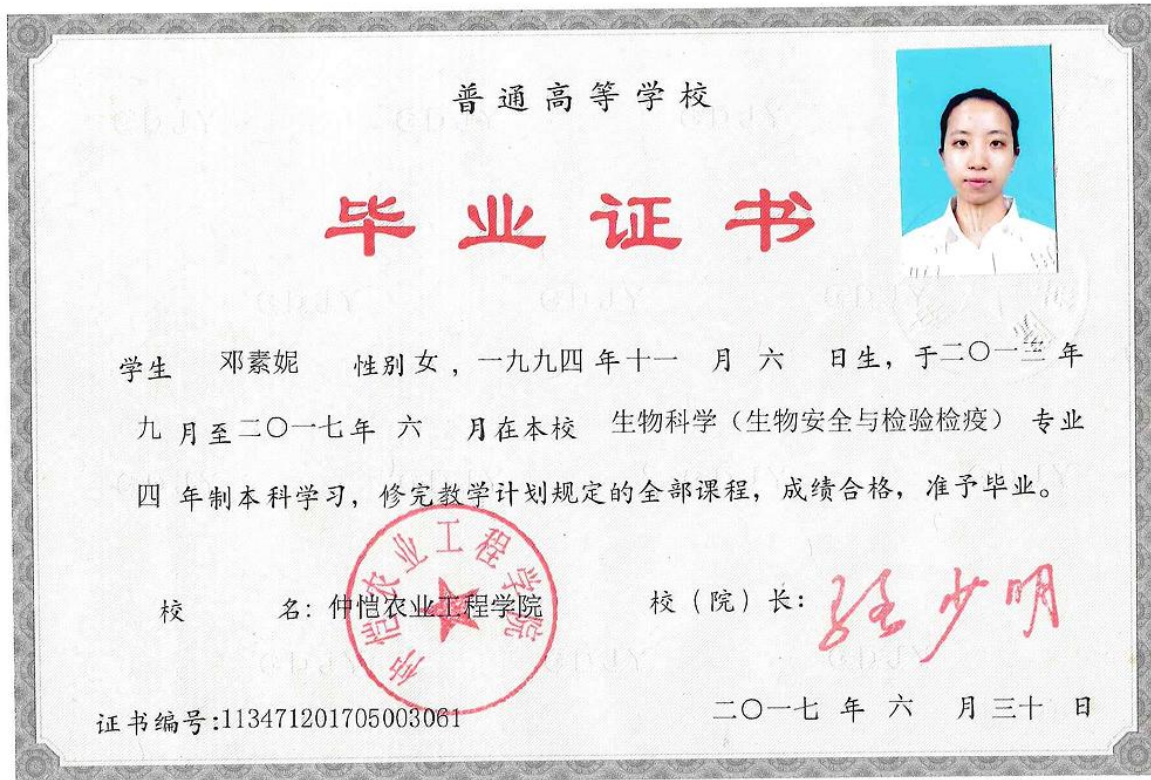 普通高等学校
毕业证书
学生 邓素妮 性别 女，一九九四 年 十一 月 六 日生，于二〇一三 年
九 月至二〇一七年 六 月在本校 生物科学（生物安全与检验检疫） 专业
四 年制本科学习，修完教学计划规定的全部课程，成绩合格，准予毕业。
校 名：仲恺农业工程学院
仲恺农业工程学院
校（院）长：
少明
证书编号：113471201705003061
二〇一七 年 六 月 三十 日